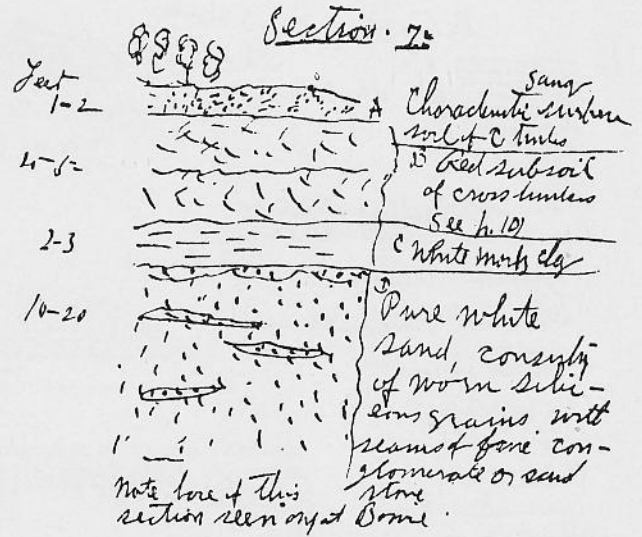 Section. 7=
Feet
1-2
A
sandy
surface
soil of C timbs
4-5=
B Red subsoil
of cross timbers
See p. 10)
2-3
C White marly clay
10-20
D
Pure white
sand, consisting
of worn silic-
eous grains with
seams of fine con-
glomerate or sand
stone
Note base of this
section seen only at